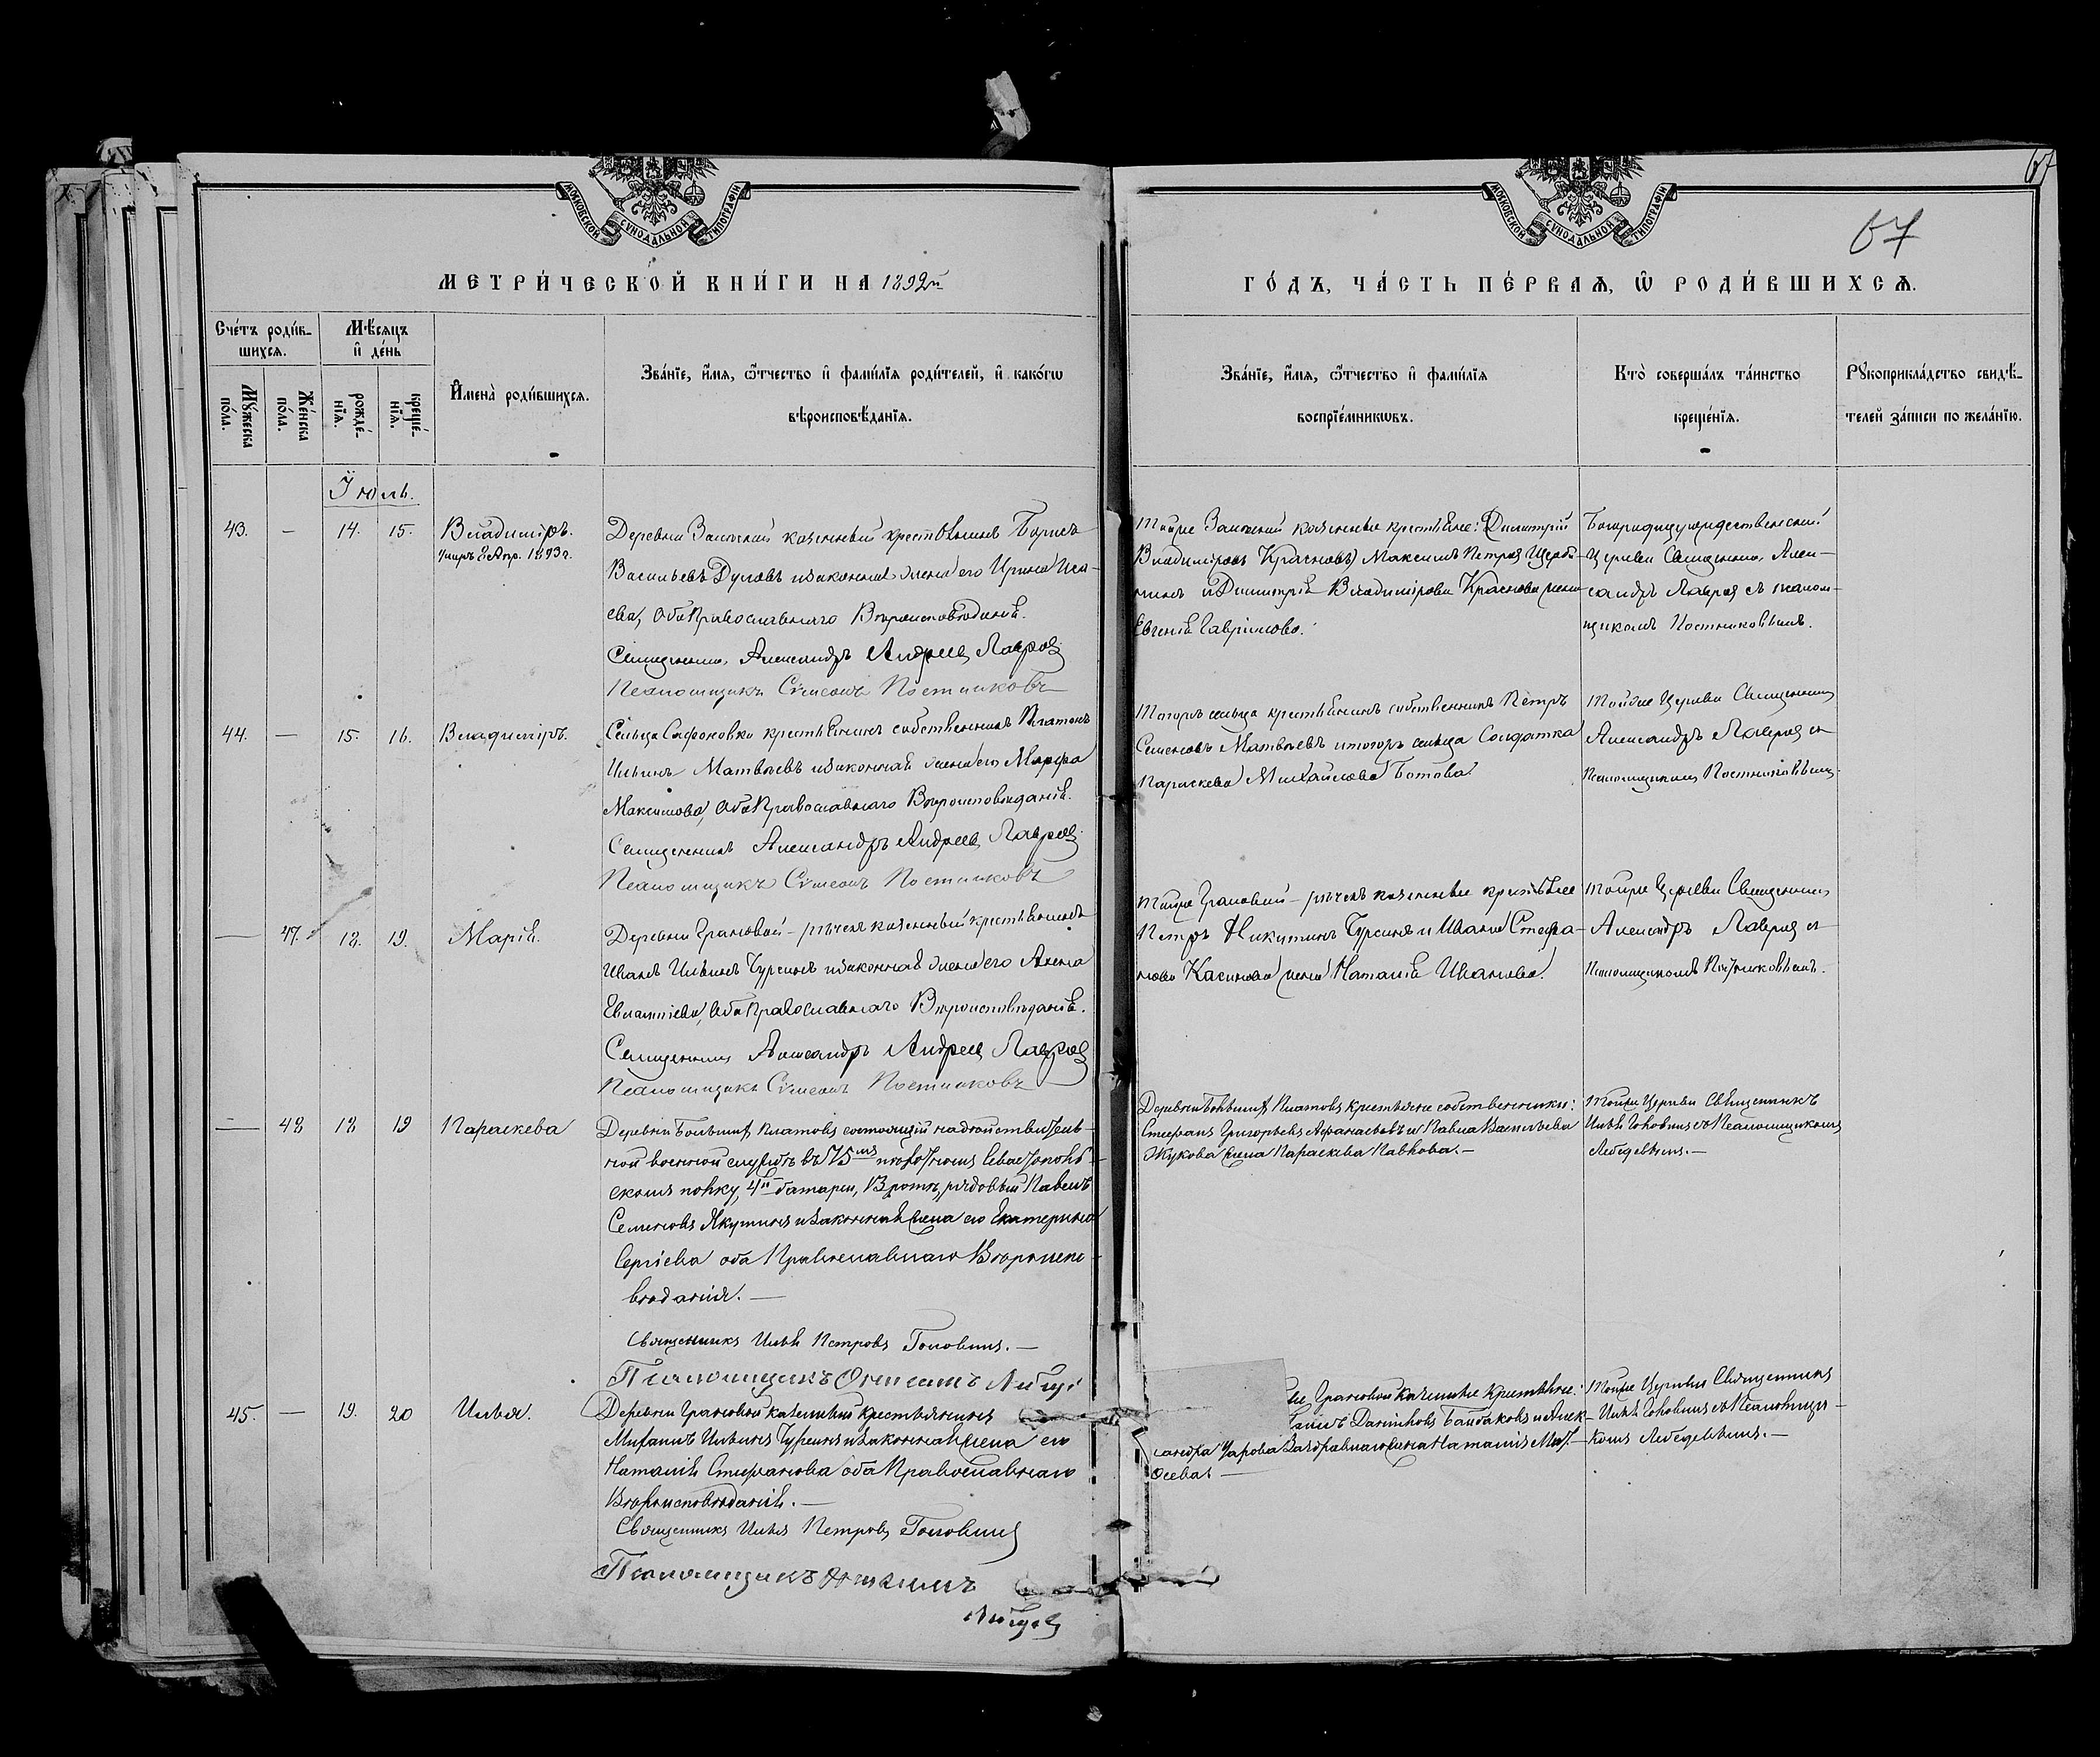 МОСКОВСКОЙ СУНОДАЛЬНОЙ ТИПОГРАФІИ
МЕТРИ́ЧЕСКОЙ КНИ́ГИ НА 1892й
Сче́тъ роди́в-
шихсѧ.
Мѣ́сѧцъ
и҆ де́нь
Мꙋ́жеска
по́ла.
Же́нска
по́ла.
рожде́-
нїѧ.
креще́-
нїѧ.
И҆мена̀ роди́вшихсѧ.
Зва́нїе, и҆́мѧ, ѻ҆́тчество и҆ фами́лїѧ роди́телей, и҆ како́гѡ
вѣроисповѣ́данїѧ.
Іюль.
43. — 14. 15. Владиміръ.
Умеръ 2 Апр. 1893 г.
Деревни казенный крестьянинъ Борисъ
Васильевъ Дуловъ и законная жена его Ирина Иса-
ева, оба Православнаго Вѣроисповѣданія.
Священникъ Александръ Андреев Лавров
Псаломщикъ Сѵмеонъ Постниковъ
44. — 15. 16. Владиміръ.
Сельца Сафоновки крестьянинъ собственникъ Платонъ
Ильинъ Матвѣевъ и законная жена его Марфа
Максимова, оба Православнаго Вѣроисповѣданія.
Священникъ Александръ Андреев Лавров
Псаломщикъ Сѵмеонъ Постниковъ
— 47. 18. 19. Марія.
Деревни Грановой-рѣчки казенный крестьянинъ
Иванъ Ильинъ Бурсинъ и законная жена его Анна
Евлампіева, оба Православнаго Вѣроисповѣданія.
Священникъ Александръ Андреев Лавров
Псаломщикъ Сѵмеонъ Постниковъ
— 48 18 19 Параскева
Деревни Большихъ Платовъ состоящій на дѣйствитель-
ной военной службѣ въ 75мъ пѣхотномъ Севастополь-
скомъ полку, 4й батареи, рядовый Павелъ
Семеновъ Якутинъ и законная жена его Екатерина
Сергіева оба Православнаго Вѣроиспо-
вѣданія. —
Священникъ Илья Петровъ Головинъ. —
Псаломщикъ
45. — 19. 20 Илья.
Деревни Грановой казенный крестьянинъ
Михаилъ Ильинъ Бурсинъ и законная жена его
Наталія Стефанова оба Православнаго
Вѣроисповѣданія. —
Священникъ Илья Петровъ Головинъ
Псаломщикъ
67
67
МОСКОВСКОЙ СУНОДАЛЬНОЙ ТИПОГРАФІИ
ГО́ДЪ, ЧА́СТЬ ПЕ́РВАѦ, Ѡ҆ РОДИ́ВШИХСѦ.
Зва́нїе, и҆́мѧ, ѻ҆́тчество и҆ фами́лїѧ
воспрїе́мникѡвъ.
Кто̀ соверша́лъ та́инство
креще́нїѧ.
Рꙋкоприкла́дство свидѣ́-
телей за́писи по жела́нїю.
Тойже казенные крестьяне: Димитрій
Владиміровъ Красновъ, Максимъ Петров
и Димитрія Владимірова Краснова жена
Евгенія Гаврилова.
Богородицерождественской
Церкви Священникъ Алек-
сандръ Лавров съ псалом-
щикомъ Постниковымъ.
Тогоже сельца крестьянинъ собственникъ Петръ
Семеновъ Матвѣевъ и тогоже сельца Солдатка
Параскева Михайлова Ботова.
Тойже Церкви Священникъ
Александръ Лавров съ
Псаломщикомъ Постниковымъ.
Тойже Грановой-рѣчки казенные крестьяне
Петръ Никитинъ Бурсинъ и Ивана Стефа-
нова Касинова жена Наталія Иванова.
Тойже Церкви Священникъ
Александръ Лавров съ
Псаломщикомъ Постниковымъ.
Деревни Большихъ Платовъ крестьяне собственники:
Стефанъ Григорьевъ Афанасьевъ и Павла Васильева
Жукова жена Параскева Павлова. —
Тойже Церкви Священникъ
Илья Головинъ съ Псаломщикомъ
Лебедевымъ. —
Грановой казенные крестьяне:
Даниловъ Байбаковъ и Алек-
сандра жена Наталія
Тойже Церкви Священникъ
Илья Головинъ съ Псаломщи-
комъ Лебедевымъ. —